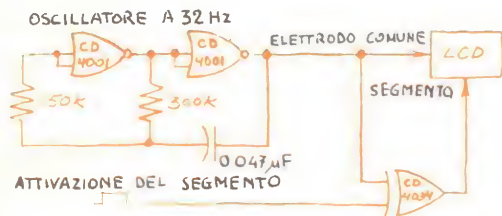 OSCILLATORE A 32 Hz
CD 4001
CD 4001
ELETTRODO COMUNE
LCD
50K
300K
SEGMENTO
0.047µF
ATTIVAZIONE DEL SEGMENTO
CD